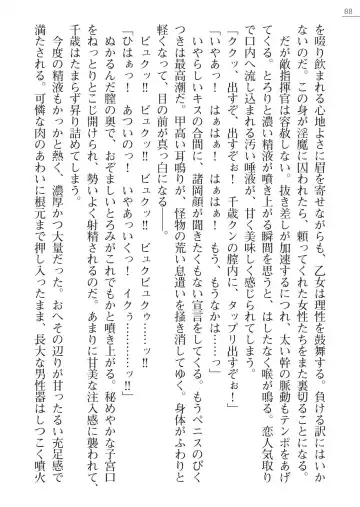 88
を啜り飲まれる心地よさに眉を寄せながらも、乙女は理性を鼓舞する。負ける訳にはいか
ないのだ。この身が淫魔に囚われたら、頼ってくれた女性たちをまた裏切ることになる。
だが敵指揮官は容赦しない。抜き差しが加速するにつれ、太い幹の脈動もテンポをあげ
てくる。とろりと濃い精液が噴き上がる瞬間を思うと、はしたなく喉が鳴る。恋人気取り
で口内へ流し込まれる汚い唾液が、甘く美味しく感じられてしまう。
「ククッ、出すぞ、出すぞぉ！　千歳クンの膣内に、タップリ出すぞぉ！」
「いやぁっ！　はぁはぁ！　はぁはぁ！　もう、もうなかは……っ」
いやらしいキスの合間に、諸岡顔が聞きたくもない宣言をしてくる。もうペニスのびく
つきは最高潮だ。甲高い耳鳴りが、怪物の荒い息遣いを掻き消してゆく。身体がふわりと
軽くなって、目の前が真っ白になる――。
ビュクッ!!　ビュクッ!!　ビュクビュクゥ……ッ!!
「ひはぁっ！　あつうっ！　いやあっいくっ！　イクぅ…………ッ!!」
ぬかるんだ膣の奥で、おぞましいとろみがこれでもかと噴き上がる。秘めやかな子宮口
をねっとりとこじ開けられ、勢いよく射精されるのだ。あまりに甘美な注入感に襲われて、
千歳はまたずり昇り詰めてしまう。
今度の精液もかっかと熱く、濃厚かつ大量だった。おへその辺りが甘ったるい充足感で
満たされる。可憐な肉のあわいに根元まで押し入ったまま、長大な男性器はしつこく噴火